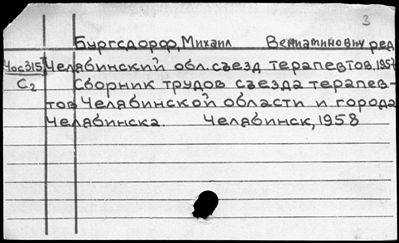 3
Бургсдорф, Михаил Вениаминович ред
Чос315 Челябинский обл. съезд терапевтов, 1957
С2 Сборник трудов съезда терапев-
тов Челябинской области и города
Челябинска. Челябинск, 1958